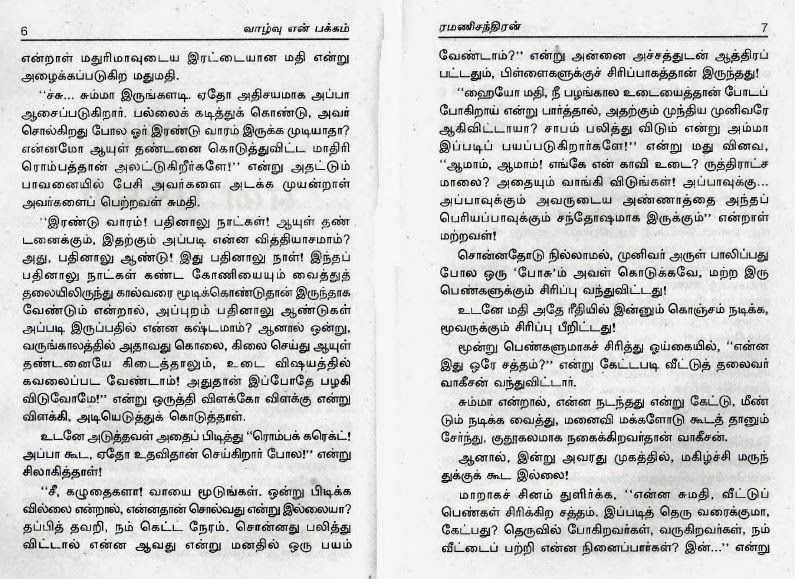 6
வாழ்வு என் பக்கம்
என்றாள் மதுரிமாவுடைய இரட்டையான மதி என்று
அழைக்கப்படுகிற மதுமதி.
“ச்சு... சும்மா இருங்களடி. ஏதோ அதிசயமாக அப்பா
ஆசைப்படுகிறார். பல்லைக் கடித்துக் கொண்டு, அவர்
சொல்கிறது போல ஓர் இரண்டு வாரம் இருக்க முடியாதா?
என்னமோ ஆயுள் தண்டனை கொடுத்துவிட்ட மாதிரி
ரொம்பத்தான் அலட்டுகிறீர்களே!” என்று அதட்டும்
பாவனையில் பேசி அவர்களை அடக்க முயன்றாள்
அவர்களைப் பெற்றவள் சுமதி.
“இரண்டு வாரம்! பதினாலு நாட்கள்! ஆயுள் தண்
டனைக்கும், இதற்கும் அப்படி என்ன வித்தியாசமாம்?
அது, பதினாலு ஆண்டு! இது பதினாலு நாள்! இந்தப்
பதினாலு நாட்கள் கண்ட கோணியையும் வைத்துத்
தலையிலிருந்து கால்வரை மூடிக்கொண்டுதான் இருந்தாக
வேண்டும் என்றால், அப்புறம் பதினாலு ஆண்டுகள்
அப்படி இருப்பதில் என்ன கஷ்டமாம்? ஆனால் ஒன்று,
வருங்காலத்தில் அதாவது கொலை, கிலை செய்து ஆயுள்
தண்டனையே கிடைத்தாலும், உடை விஷயத்தில்
கவலைப்பட வேண்டாம்! அதுதான் இப்போதே பழகி
விடுவோமே!” என்று ஒருத்தி விளக்கோ விளக்கு என்று
விளக்கி, அடியெடுத்துக் கொடுத்தாள்.
உடனே அடுத்தவள் அதைப் பிடித்து “ரொம்பக் கரெக்ட்!
அப்பா கூட, ஏதோ உதவிதான் செய்கிறார் போல!” என்று
சிலாகித்தாள்!
“சீ, கழுதைகளா! வாயை மூடுங்கள். ஒன்று பிடிக்க
வில்லை என்றால், என்னதான் சொல்வது என்று இல்லையா?
தப்பித் தவறி, நம் கெட்ட நேரம். சொன்னது பலித்து
விட்டால் என்ன ஆவது என்று மனதில் ஒரு பயம்
ரமணிசந்திரன்
7
வேண்டாம்?” என்று அன்னை அச்சத்துடன் ஆத்திரப்
பட்டதும், பிள்ளைகளுக்குச் சிரிப்பாகத்தான் இருந்தது!
“ஹையோ மதி, நீ பழங்கால உடையைத்தான் போடப்
போகிறாய் என்று பார்த்தால், அதற்கும் முந்திய முனிவரே
ஆகிவிட்டாயா? சாபம் பலித்து விடும் என்று அம்மா
இப்படிப் பயப்படுகிறார்களே!” என்று மது வினவ,
“ஆமாம், ஆமாம்! எங்கே என் காவி உடை? ருத்திராட்ச
மாலை? அதையும் வாங்கி விடுங்கள்! அப்பாவுக்கு...
அப்பாவுக்கும் அவருடைய அண்ணாத்தை அந்தப்
பெரியப்பாவுக்கும் சந்தோஷமாக இருக்கும்” என்றாள்
மற்றவள்!
சொன்னதோடு நில்லாமல், முனிவர் அருள் பாலிப்பது
போல ஒரு ‘போசு’ம் அவள் கொடுக்கவே, மற்ற இரு
பெண்களுக்கும் சிரிப்பு வந்துவிட்டது!
உடனே மதி அதே ரீதியில் இன்னும் கொஞ்சம் நடிக்க,
மூவருக்கும் சிரிப்பு பீறிட்டது!
மூன்று பெண்களுமாகச் சிரித்து ஓய்கையில், “என்ன
இது ஒரே சத்தம்?” என்று கேட்டபடி வீட்டுத் தலைவர்
வாகீசன் வந்துவிட்டார்.
சும்மா என்றால், என்ன நடந்தது என்று கேட்டு, மீண்
டும் நடிக்க வைத்து, மனைவி மக்களோடு கூடத் தானும்
சேர்ந்து, குதூகலமாக நகைக்கிறவர்தான் வாகீசன்.
ஆனால், இன்று அவரது முகத்தில், மகிழ்ச்சி மருந்
துக்குக் கூட இல்லை!
மாறாகச் சினம் துளிர்க்க, “என்ன சுமதி, வீட்டுப்
பெண்கள் சிரிக்கிற சத்தம். இப்படித் தெரு வரைக்குமா,
கேட்பது? தெருவில் போகிறவர்கள், வருகிறவர்கள், நம்
வீட்டைப் பற்றி என்ன நினைப்பார்கள்? இன்...” என்று